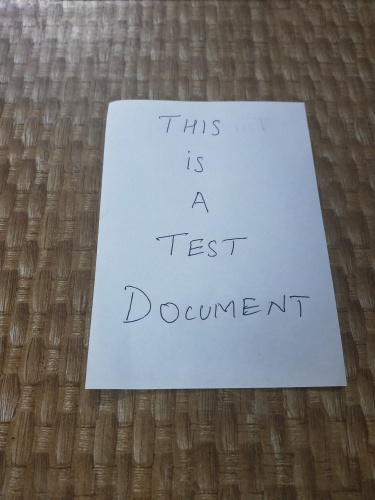 THIS
is
A
TEST
DOCUMENT